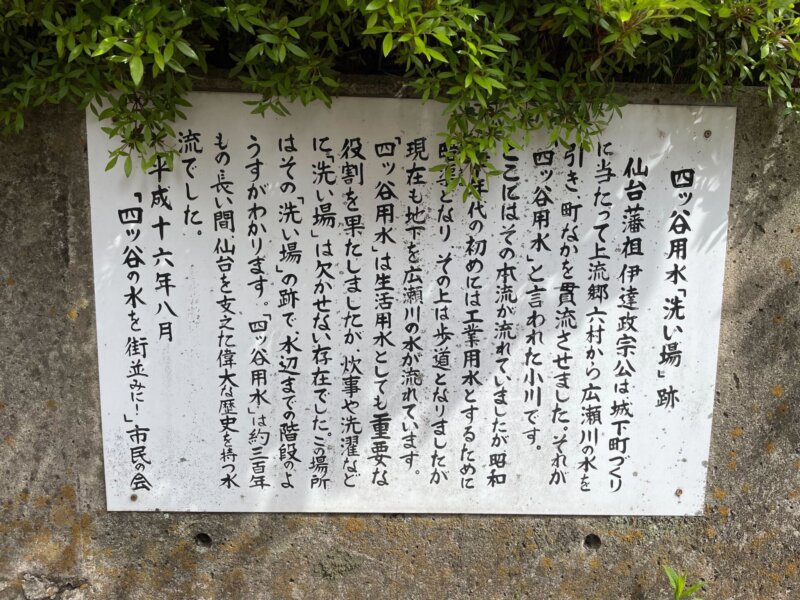 四ッ谷用水「洗い場」跡
仙台藩祖 伊達政宗公は城下町づくり
に当たって上流郷六村から広瀬川の水を
引き 町なかを貫流させました。それが
「四ッ谷用水」と言われた小川です。
ここにはその本流が流れていましたが 昭和
十年代の初めには工業用水とするために
暗渠となり その上は歩道となりましたが
現在も地下を広瀬川の水が流れています。
「四ッ谷用水」は生活用水としても重要な
役割を果たしましたが 炊事や洗濯など
に「洗い場」は欠かせない存在でした。この場所
はその「洗い場」の跡で、水辺までの階段のよ
うすがわかります。「四ッ谷用水」は約三百年
もの長い間 仙台を支えた偉大な歴史を持つ水
流でした。
平成十六年八月
「四ッ谷の水を街並みに!」市民の会